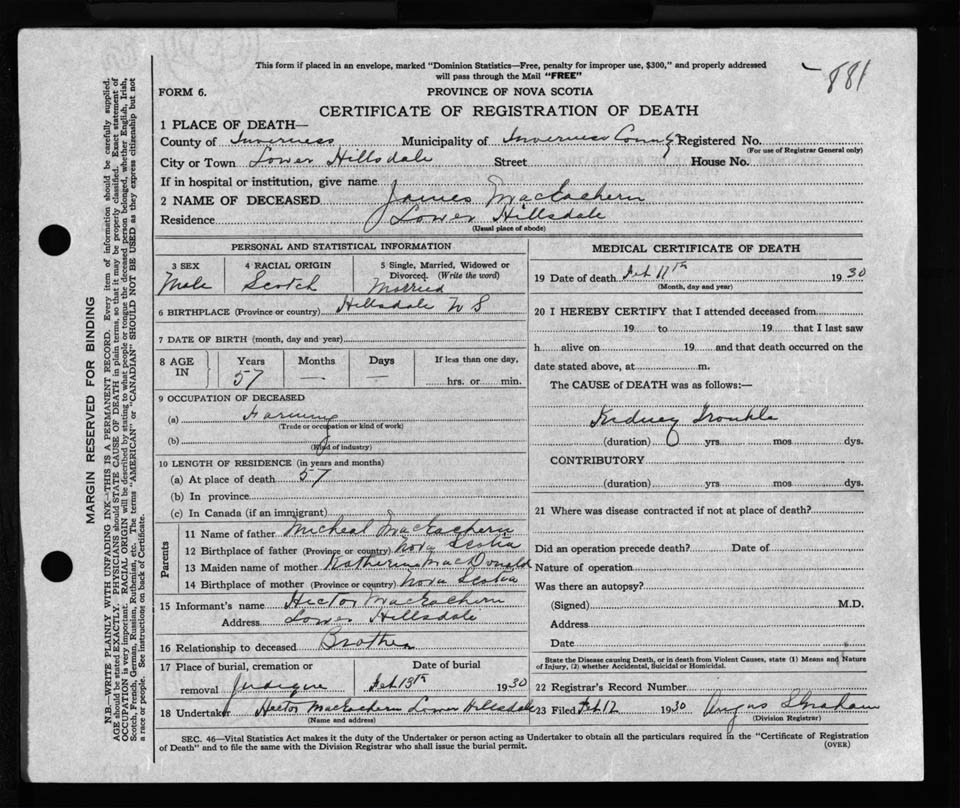 881
This form if placed in an envelope, marked "Dominion Statistics—Free, penalty for improper use, $300," and properly addressed
will pass through the Mail "FREE"
FORM 6. PROVINCE OF NOVA SCOTIA
CERTIFICATE OF REGISTRATION OF DEATH
1 PLACE OF DEATH—
County of Inverness Municipality of Inverness County Registered No.
(For use of Registrar General only)
City or Town Lower Hillsdale Street House No.
If in hospital or institution, give name
2 NAME OF DECEASED James MacEachern
Residence Lower Hillsdale
(Usual place of abode)
PERSONAL AND STATISTICAL INFORMATION
3 SEX 4 RACIAL ORIGIN 5 Single, Married, Widowed or
Divorced. (Write the word)
Male Scotch Married
6 BIRTHPLACE (Province or country) Hillsdale N S
7 DATE OF BIRTH (month, day and year)
8 AGE IN Years Months Days If less than one day,
57 — — hrs. or min.
9 OCCUPATION OF DECEASED
(a) Farming
(Trade or occupation or kind of work)
(b)
(Kind of industry)
10 LENGTH OF RESIDENCE (in years and months)
(a) At place of death 57
(b) In province
(c) In Canada (if an immigrant)
Parents
11 Name of father Micheal MacEachern
12 Birthplace of father (Province or country) Nova Scotia
13 Maiden name of mother Katherine MacDonald
14 Birthplace of mother (Province or country) Nova Scotia
15 Informant's name Hector MacEachern
Address Lower Hillsdale
16 Relationship to deceased Brother
17 Place of burial, cremation or Date of burial
removal Judique Feb 13th 1930
18 Undertaker Hector MacEachern Lower Hillsdale
(Name and address)
MEDICAL CERTIFICATE OF DEATH
19 Date of death Feb 11th 1930
(Month, day and year)
20 I HEREBY CERTIFY that I attended deceased from
19 to 19 that I last saw
h alive on 19 and that death occurred on the
date stated above, at m.
The CAUSE of DEATH was as follows:—
Kidney Trouble
(duration) yrs. mos. dys.
CONTRIBUTORY
(duration) yrs. mos. dys.
21 Where was disease contracted if not at place of death?
Did an operation precede death? Date of
Nature of operation
Was there an autopsy?
(Signed) M.D.
Address
Date
State the Disease causing Death, or in death from Violent Causes, state (1) Means and Nature
of Injury, (2) whether Accidental, Suicidal or Homicidal.
22 Registrar's Record Number
23 Filed Feb 12 1930 Angus Graham
(Division Registrar)
SEC. 46—Vital Statistics Act makes it the duty of the Undertaker or person acting as Undertaker to obtain all the particulars required in the "Certificate of Registration
of Death" and to file the same with the Division Registrar who shall issue the burial permit. (OVER)
MARGIN RESERVED FOR BINDING
N.B.—WRITE PLAINLY WITH UNFADING INK—THIS IS A PERMANENT RECORD. Every item of information should be carefully supplied.
AGE should be stated EXACTLY. PHYSICIANS should STATE CAUSE OF DEATH in plain terms, so that it may be properly classified. Exact statement of
OCCUPATION is very important. RACIAL ORIGIN will be described by stating to what people or tongue the deceased person belonged, whether English, Irish,
Scotch, French, German, Russian, Ruthenian, etc. The terms "AMERICAN" or "CANADIAN" SHOULD NOT BE USED as they express citizenship but not
a race or people. See instructions on back of Certificate.